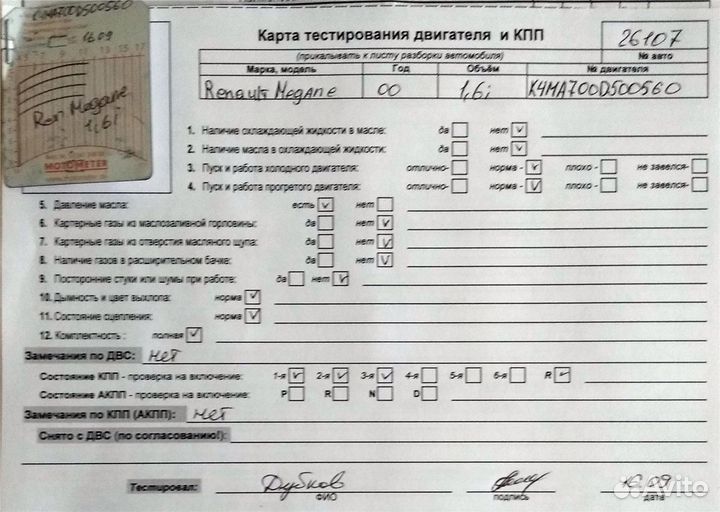 K4MA700D500560
16.09
11 13 15 17
Ren Megane
1,6i
MOTOMETER
Карта тестирования двигателя и КПП
(прикалывать к листу разборки автомобиля)
26107
№ авто
Марка, модель Год Объём № двигателя
Renault Megane 00 1,6i K4MA700D500560
1. Наличие охлаждающей жидкости в масле: да нет V
2. Наличие масла в охлаждающей жидкости: да нет V
3. Пуск и работа холодного двигателя: отлично- норма - V плохо - не завелся-
4. Пуск и работа прогретого двигателя: отлично- норма - V плохо - не завелся-
5. Давление масла: есть V нет
6. Картерные газы из маслозаливной горловины: да нет V
7. Картерные газы из отверстия масляного щупа: да нет V
8. Наличие газов в расширительном бачке: да нет V
9. Посторонние стуки или шумы при работе: да нет V
10. Дымность и цвет выхлопа: норма V
11. Состояние сцепления: норма V
12. Комплектность : полная V
Замечания по ДВС: нет
Состояние КПП - проверка на включение: 1-я V 2-я V 3-я V 4-я 5-я 6-я R V
Состояние АКПП - проверка на включение: P R N D
Замечания по КПП (АКПП): нет
Снято с ДВС (по согласованию!):
Тестировал: Дубков 16.09
ФИО подпись дата
Avito